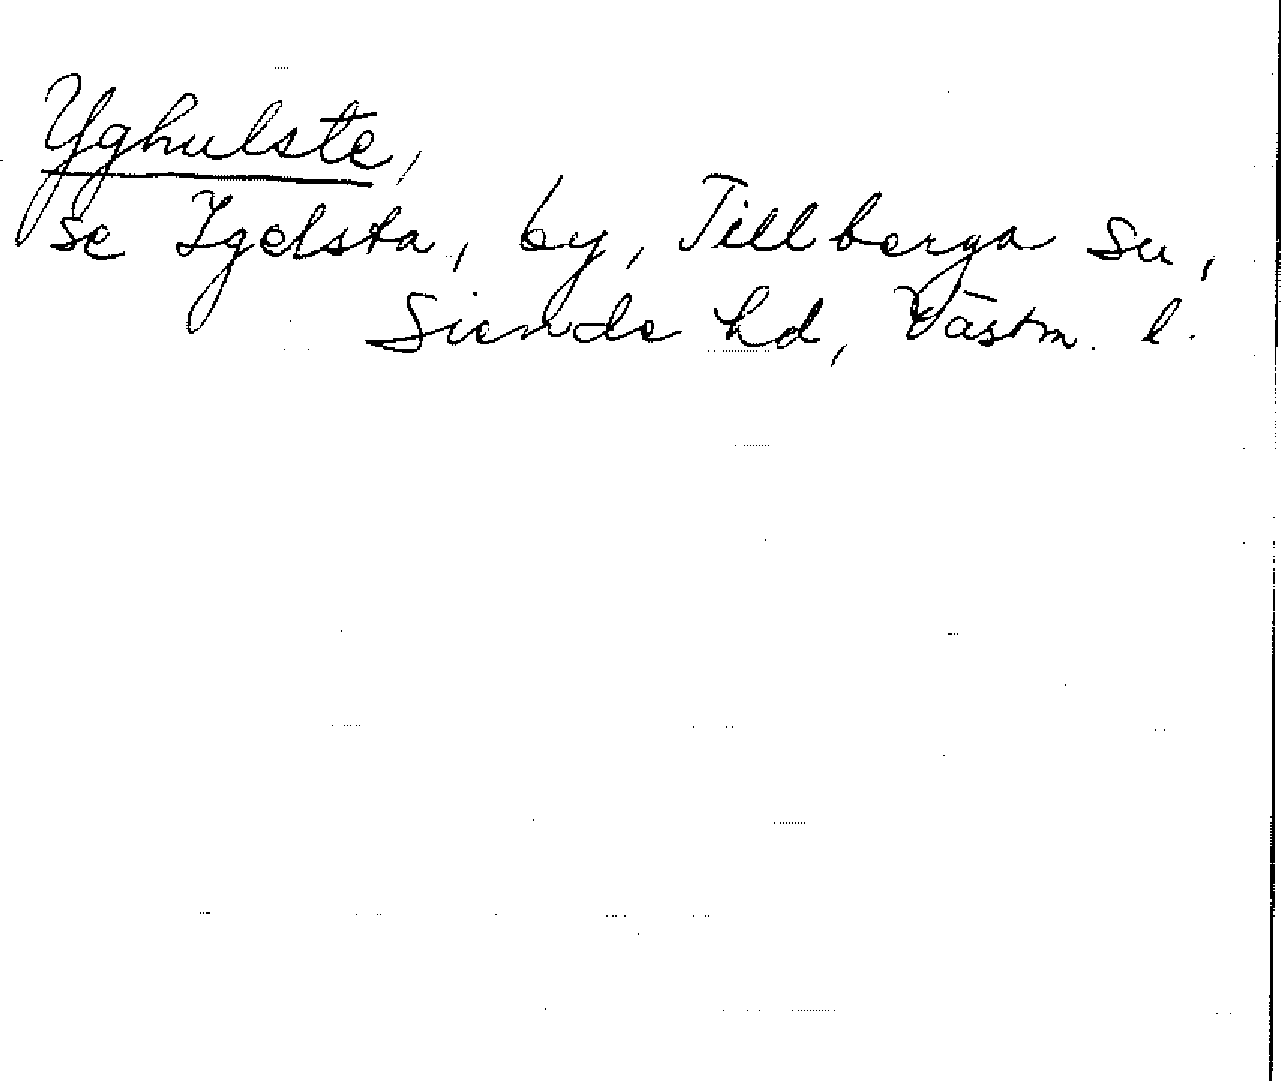 Yghulste,
se Igelsta, by, Tillberga sn,
Siende hd, Västm. l.